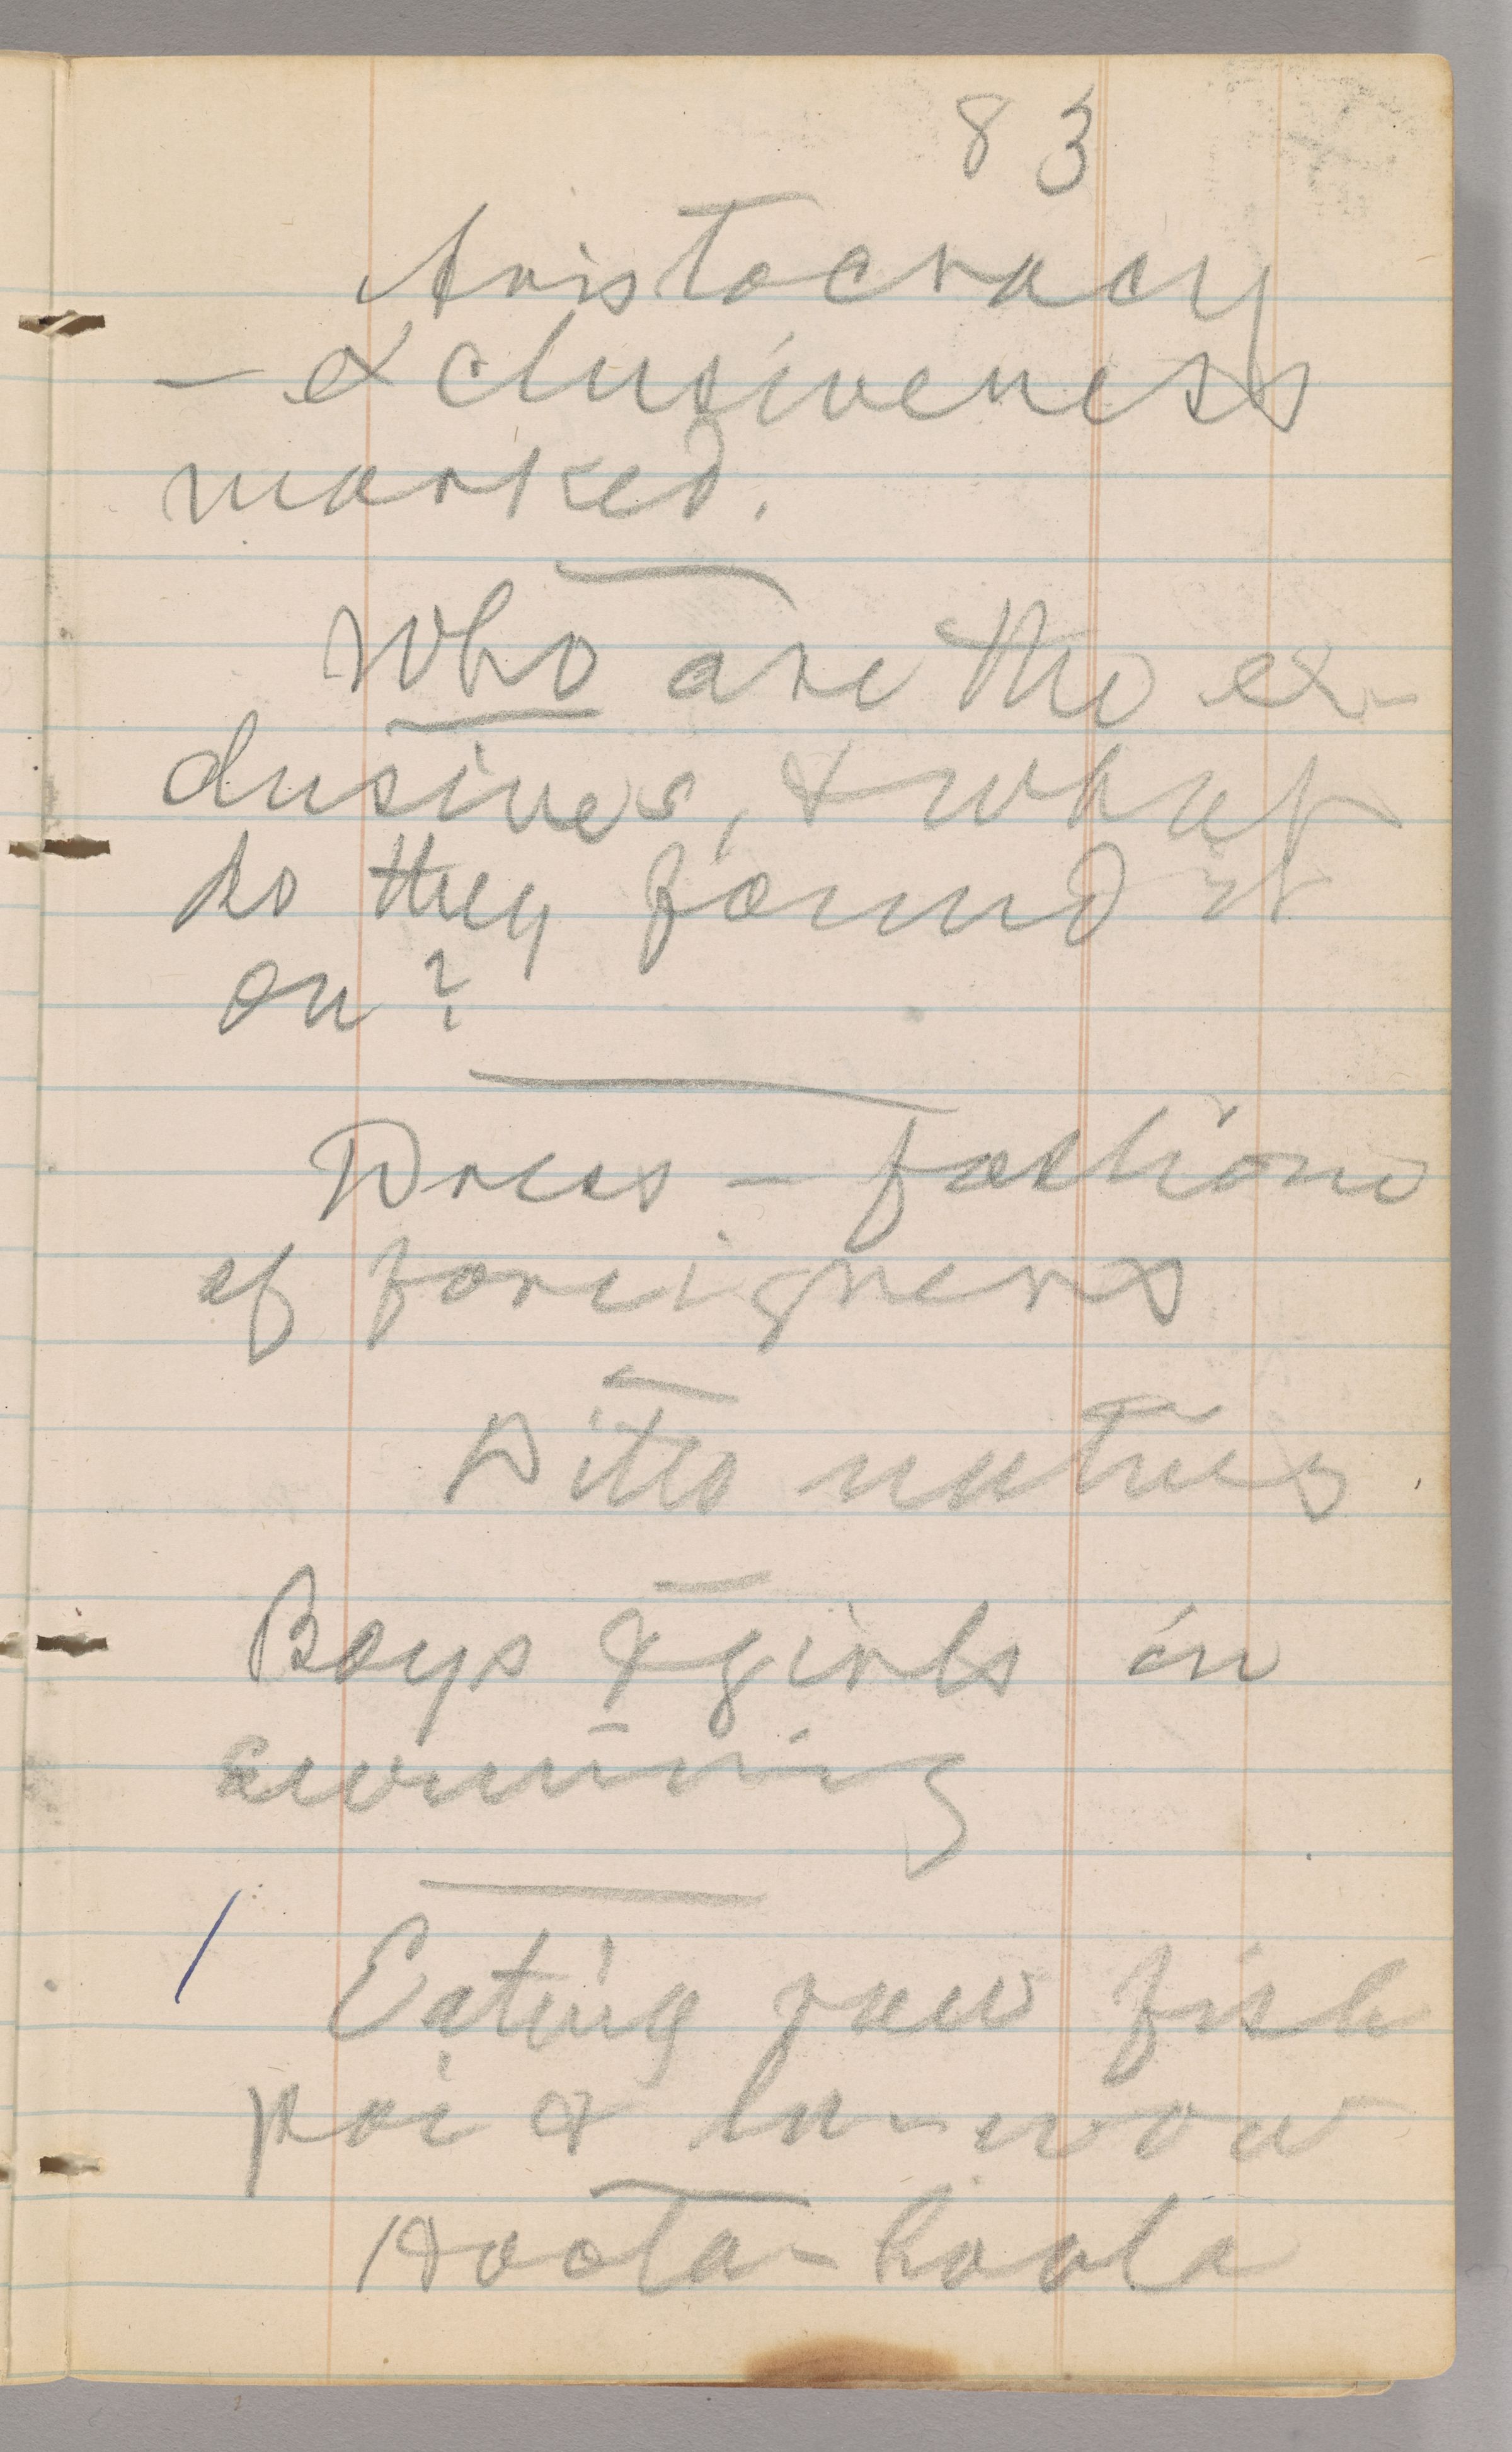 83
Aristocracy
- exclusiveness
marked.
Who are the ex-
clusives, & what
do they found it
on?
Dress - fashions
of foreigners
Ditto natives
Boys & girls in
swimming
Eating raw fish
poi &
Hoola-hoola